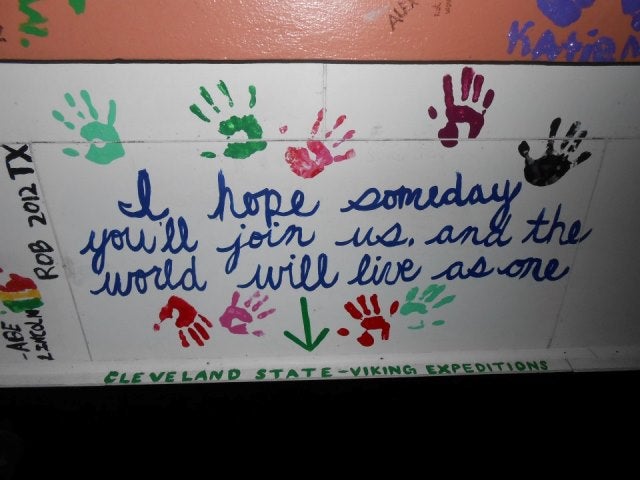 ALEX
Katie
I hope someday
you'll join us, and the
world will live as one
CLEVELAND STATE-VIKING EXPEDITIONS
ROB 2012 TX
-ABE
LINCOLN